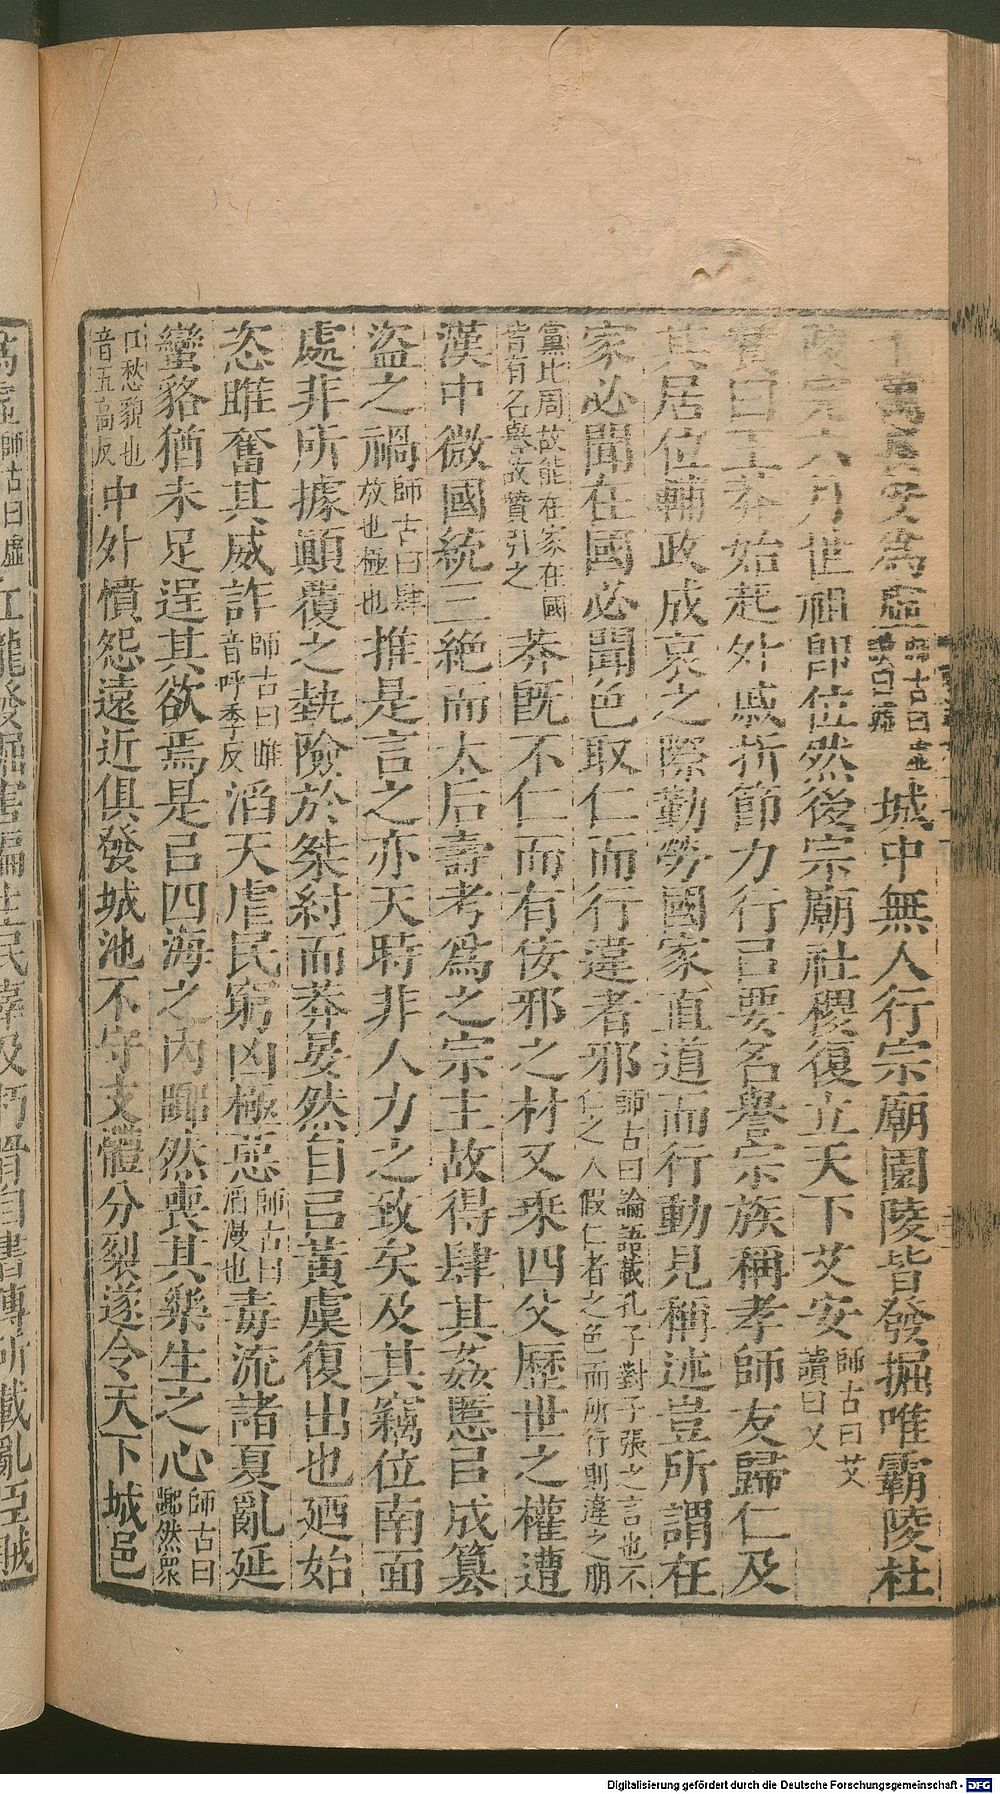 萬長安爲虛師古曰虛讀曰墟城中無人行宗廟園陵皆發掘唯霸陵杜
陵完六月世祖卽位然後宗廟社稷復立天下艾安師古曰艾讀曰乂
贊曰王莽始起外戚折節力行㠯要名譽宗族稱孝師友歸仁及
其居位輔政成哀之際勤勞國家直道而行動見稱述豈所謂在
家必聞在國必聞色取仁而行違者邪師古曰論語載孔子對子張之言也不仁之人假仁者之色而所行則違之朋
黨比周故能在家在國皆有名譽故贊引之莽旣不仁而有佞邪之材又乘四父歷世之權遭
漢中微國統三絕而太后壽考爲之宗主故得肆其姦慝㠯成篡
盜之禍師古曰肆放也極也推是言之亦天時非人力之致矣及其竊位南面
處非所據顚覆之埶險於桀紂而莽晏然自㠯黃虞復出也廼始
恣睢奮其威詐師古曰睢音呼季反滔天虐民窮凶極惡師古曰滔漫也毒流諸夏亂延
蠻貉猶未足逞其欲焉是㠯四海之內嚻然喪其樂生之心師古曰嚻然衆
口愁貌也音五高反中外憤怨遠近俱發城池不守支體分裂遂令天下城邑
爲虛師古曰虛丘壠發掘害徧生民辜及朽骨自書傳所載亂臣賊
Digitalisierung gefördert durch die Deutsche Forschungsgemeinschaft - DFG